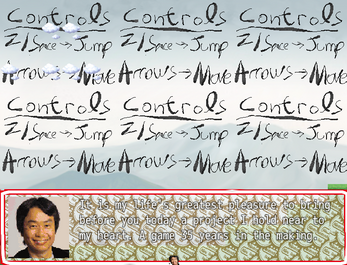 Controls Controls Controls
Z/Space → Jump Z/Space → Jump Z/Space → Jump
Arrows → Move Arrows → Move Arrows → Move
Controls Controls Controls
Z/Space → Jump Z/Space → Jump Z/Space → Jump
Arrows → Move Arrows → Move Arrows → Move
It is my life's greatest pleasure to bring
before you today a project I hold near to
my heart. A game 35 years in the making.